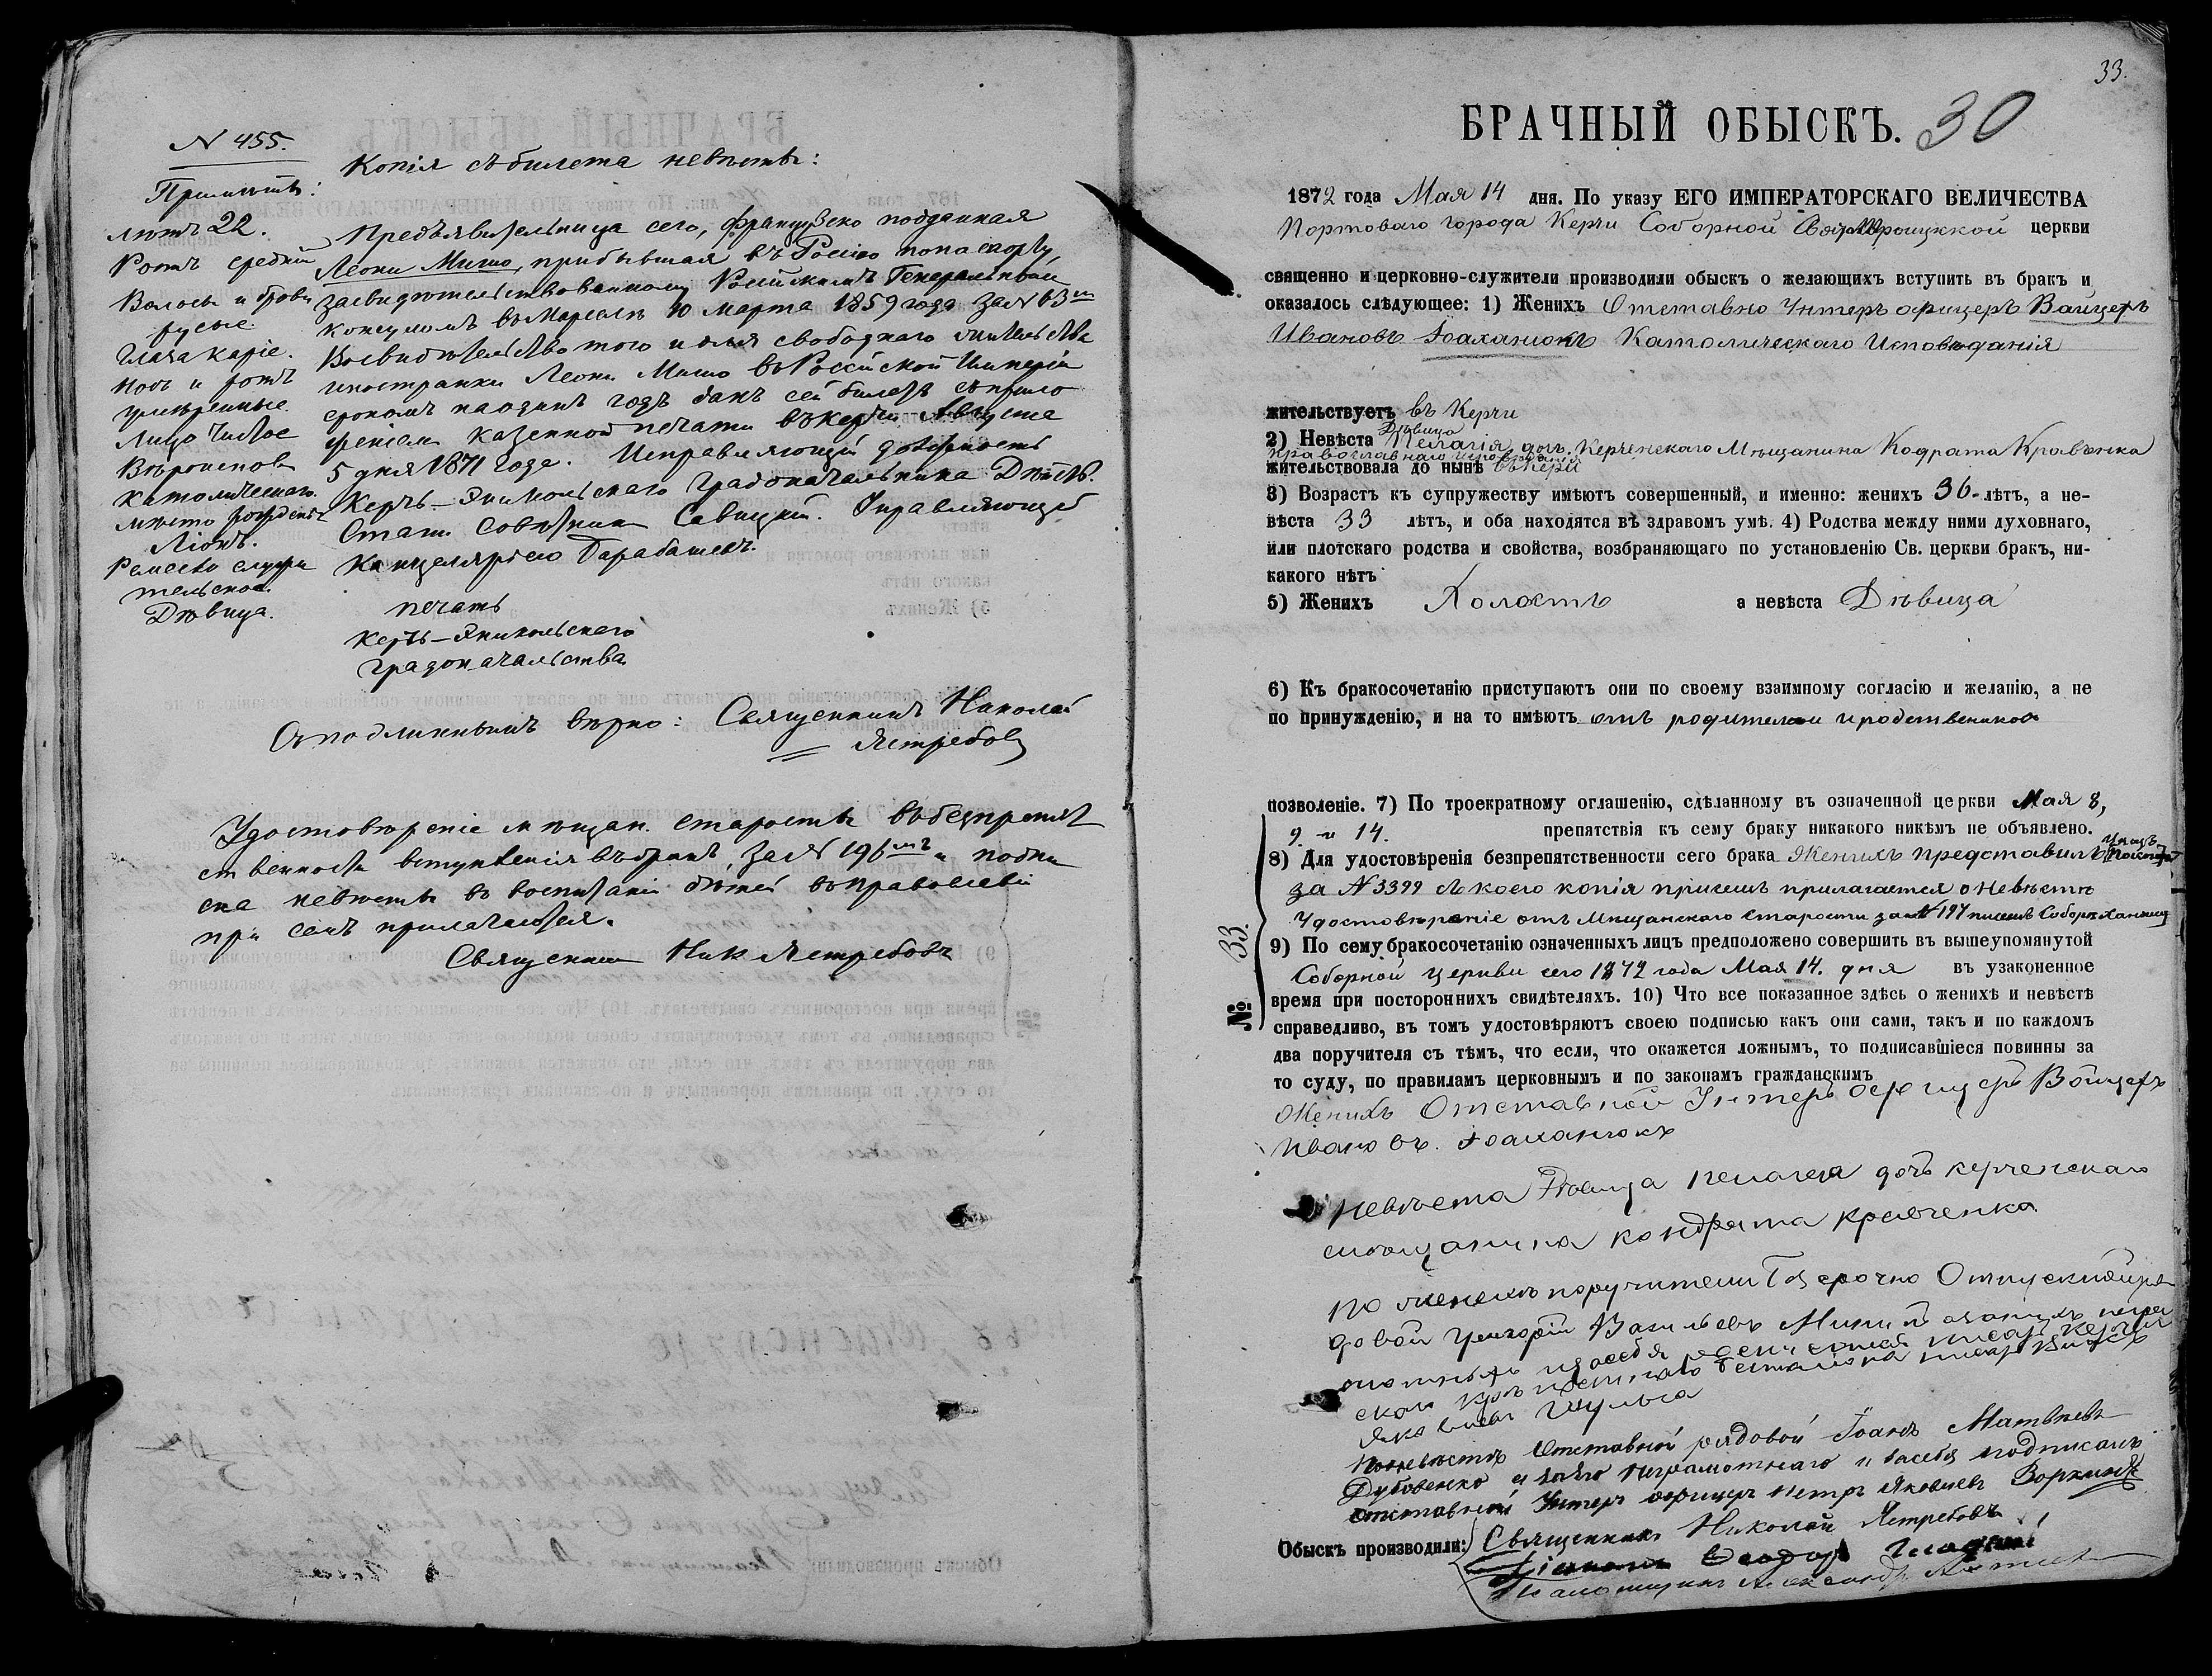 N 455.
Копія съ билета невѣсты:
Примѣты:
лѣтъ 22.
Ростъ средній
Волосы и брови
русые.
Глаза каріе.
Носъ и ротъ
умѣренные.
Лицо чистое
Вѣроисповѣ
католическаго.
мѣсто рожденія
Ліонъ.
Ремесло служи
тельское.
Дѣвица.
Предъявительница сего, французско подданная
Леони Мишо, прибывшая въ Россію по паспорту,
засвидѣтельствованному Россійскимъ Генеральнымъ
консуломъ въ Марселѣ 10 марта 1859 года за N 63
Во свидѣтельство того и для свободнаго жительства
иностранки Леони Мишо въ Россійской Имперіи
срокомъ на одинъ годъ данъ сей билетъ съ прило
женіемъ казенной печати въ Керчи Августа
5 дня 1871 года. Исправляющій должность
Керчь-Яникольскаго Градоначальника Дѣйств.
Стат. Совѣтникъ Савицкій. Управляющій
Канцеляріею Барабашевъ.
печать
Керчь-Яникольскаго
градоначальства
Съ подлиннымъ вѣрно: Священникъ Николай
Ястребовъ
Удостовѣреніе мѣщан. старосты въ безпрепят
ственности вступленія въ бракъ за N 196 и подпи
ска невѣсты въ воспитаніи дѣтей въ православіи
при семъ прилагаются.
Священникъ Ник Ястребовъ
33.
БРАЧНЫЙ ОБЫСКЪ. 30
1872 года Мая 14 дня. По указу ЕГО ИМПЕРАТОРСКАГО ВЕЛИЧЕСТВА
Портоваго города Керчи Соборной Троицкой церкви
священно и церковно-служители производили обыскъ о желающихъ вступить въ бракъ и
оказалось слѣдующее: 1) Женихъ Отставно Унтеръ офицеръ Вайцехъ
Ивановъ Католическаго Исповѣданія
жительствуетъ въ Керчи
Дѣвица
2) Невѣста Пелагія дочь Керченскаго Мѣщанина Кодрата Кравѣнка
православнаго исповѣданія
жительствовала до нынѣ въ Керчи
3) Возрастъ къ супружеству имѣютъ совершенный, и именно: женихъ 36 лѣтъ, а не-
вѣста 33 лѣтъ, и оба находятся въ здравомъ умѣ. 4) Родства между ними духовнаго,
или плотскаго родства и свойства, возбраняющаго по установленію Св. церкви бракъ, ни-
какого нѣтъ
5) Женихъ Холостъ а невѣста Дѣвица
6) Къ бракосочетанію приступаютъ они по своему взаимному согласію и желанію, а не
по принужденію, и на то имѣютъ отъ родителей и родственниковъ
позволеніе. 7) По троекратному оглашенію, сдѣланному въ означенной церкви Мая 8,
9 и 14. препятствія къ сему браку никакого никѣмъ не объявлено.
8) Для удостовѣренія безпрепятственности сего брака Женихъ представилъ
за N 3399 съ коего копія при семъ прилагается о Невѣстѣ
Удостовѣреніе отъ Мѣщанскаго Старосты за N 197
№ 33.
9) По сему бракосочетанію означенныхъ лицъ предположено совершить въ вышеупомянутой
Соборной церкви сего 1872 года Мая 14. дня въ узаконенное
время при постороннихъ свидѣтеляхъ. 10) Что все показанное здѣсь о женихѣ и невѣстѣ
справедливо, въ томъ удостовѣряютъ своею подписью какъ они сами, такъ и по каждомъ
два поручителя съ тѣмъ, что если, что окажется ложнымъ, то подписавшіеся повинны за
то суду, по правиламъ церковнымъ и по законамъ гражданскимъ
Женихъ Отставной Унтеръ офицеръ Войцехъ
Ивановъ.
Невѣста Дѣвица Пелагея дочъ керченскаго
мѣщанина кондрата кравченка
По женихѣ поручители Отпускной ря
довой Григорій Васильевъ
Яковлевъ Шульга
По невѣстѣ Отставной рядовой Іоанъ Матвѣевъ
Дубовенко и за него неграмотнаго и за себя подписалъ
отставной Унтеръ офицеръ Петръ Яковлевъ
Обыскъ производили: Священникъ Николай Ястребовъ
Діаконъ Ѳеодоръ
Александръ